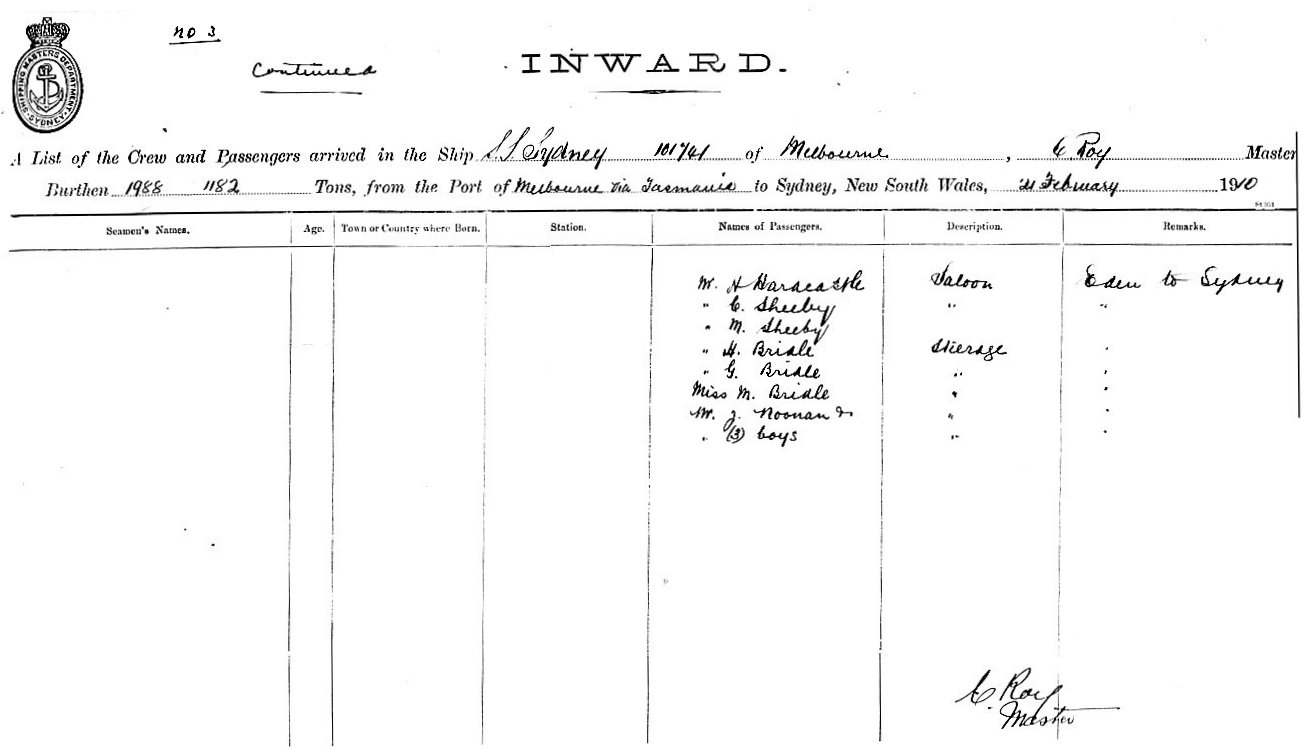 no 3
SHIPPING MASTERS DEPARTMENT. SYDNEY
Continued
INWARD.
A List of the Crew and Passengers arrived in the Ship S.S. Sydney 101741 of Melbourne, C. Roy Master
Burthen 1988 1182 Tons, from the Port of Melbourne via Tasmania to Sydney, New South Wales, 21 February 1910
Seamen's Names. Age. Town or Country where Born. Station. Names of Passengers. Description. Remarks.
Mr. H Hardcastle Saloon Eden to Sydney
" C. Sheeby " "
" M. Sheeby
" H. Bridle Steerage "
" G. Bridle " "
Miss M. Bridle " "
Mr. J. Noonan & " "
" (3) boys " "
C. Roy
Master